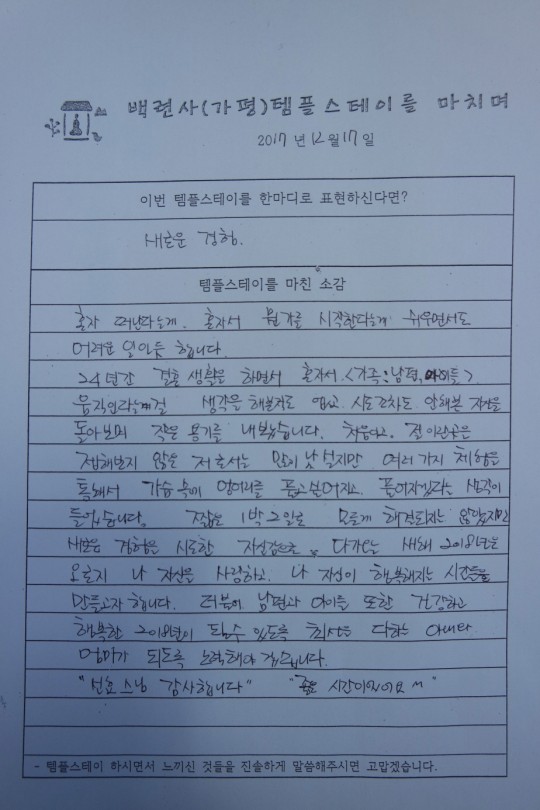 백련사(가평)템플스테이를 마치며
2017년 12월 17일
이번 템플스테이를 한마디로 표현하신다면?
새로운 경험.
템플스테이를 마친 소감
혼자 떠난다는게. 혼자서 뭔가를 시작한다는게 쉬우면서도
어려운 일인듯 합니다.
24년간 결혼 생활을 하면서 혼자서.<가족:남편,아이들>.
움직인다는걸 생각은 해본적도 없고. 시도조차도 안해본 자신을
돌아보며 작은 용기를 내봤습니다. 처음이고. 절이란곳은
접해보지 않은 저로서는 많이 낯설지만 여러가지 체험을
통해서 가슴속에 덩어리를 풀고 싶어지고. 풀어지겠다는 생각이
들었습니다. 짧은 1박2일로 모든게 해결되지는 않았지만
새로운 경험을 시도한 자신감으로 다가오는 새해 2018년은
오로지 나 자신을 사랑하고. 나 자신이 행복해지는 시간들을
만들고자 합니다. 더불어 남편과 아이들 또한 건강하고
행복한 2018년이 될수 있도록 최선을 다하는 아내와
엄마가 되도록 노력해야 겠습니다.
"선효스님 감사합니다" "좋은 시간이였어요 ^^"
- 템플스테이 하시면서 느끼신 것들을 진솔하게 말씀해주시면 고맙겠습니다.